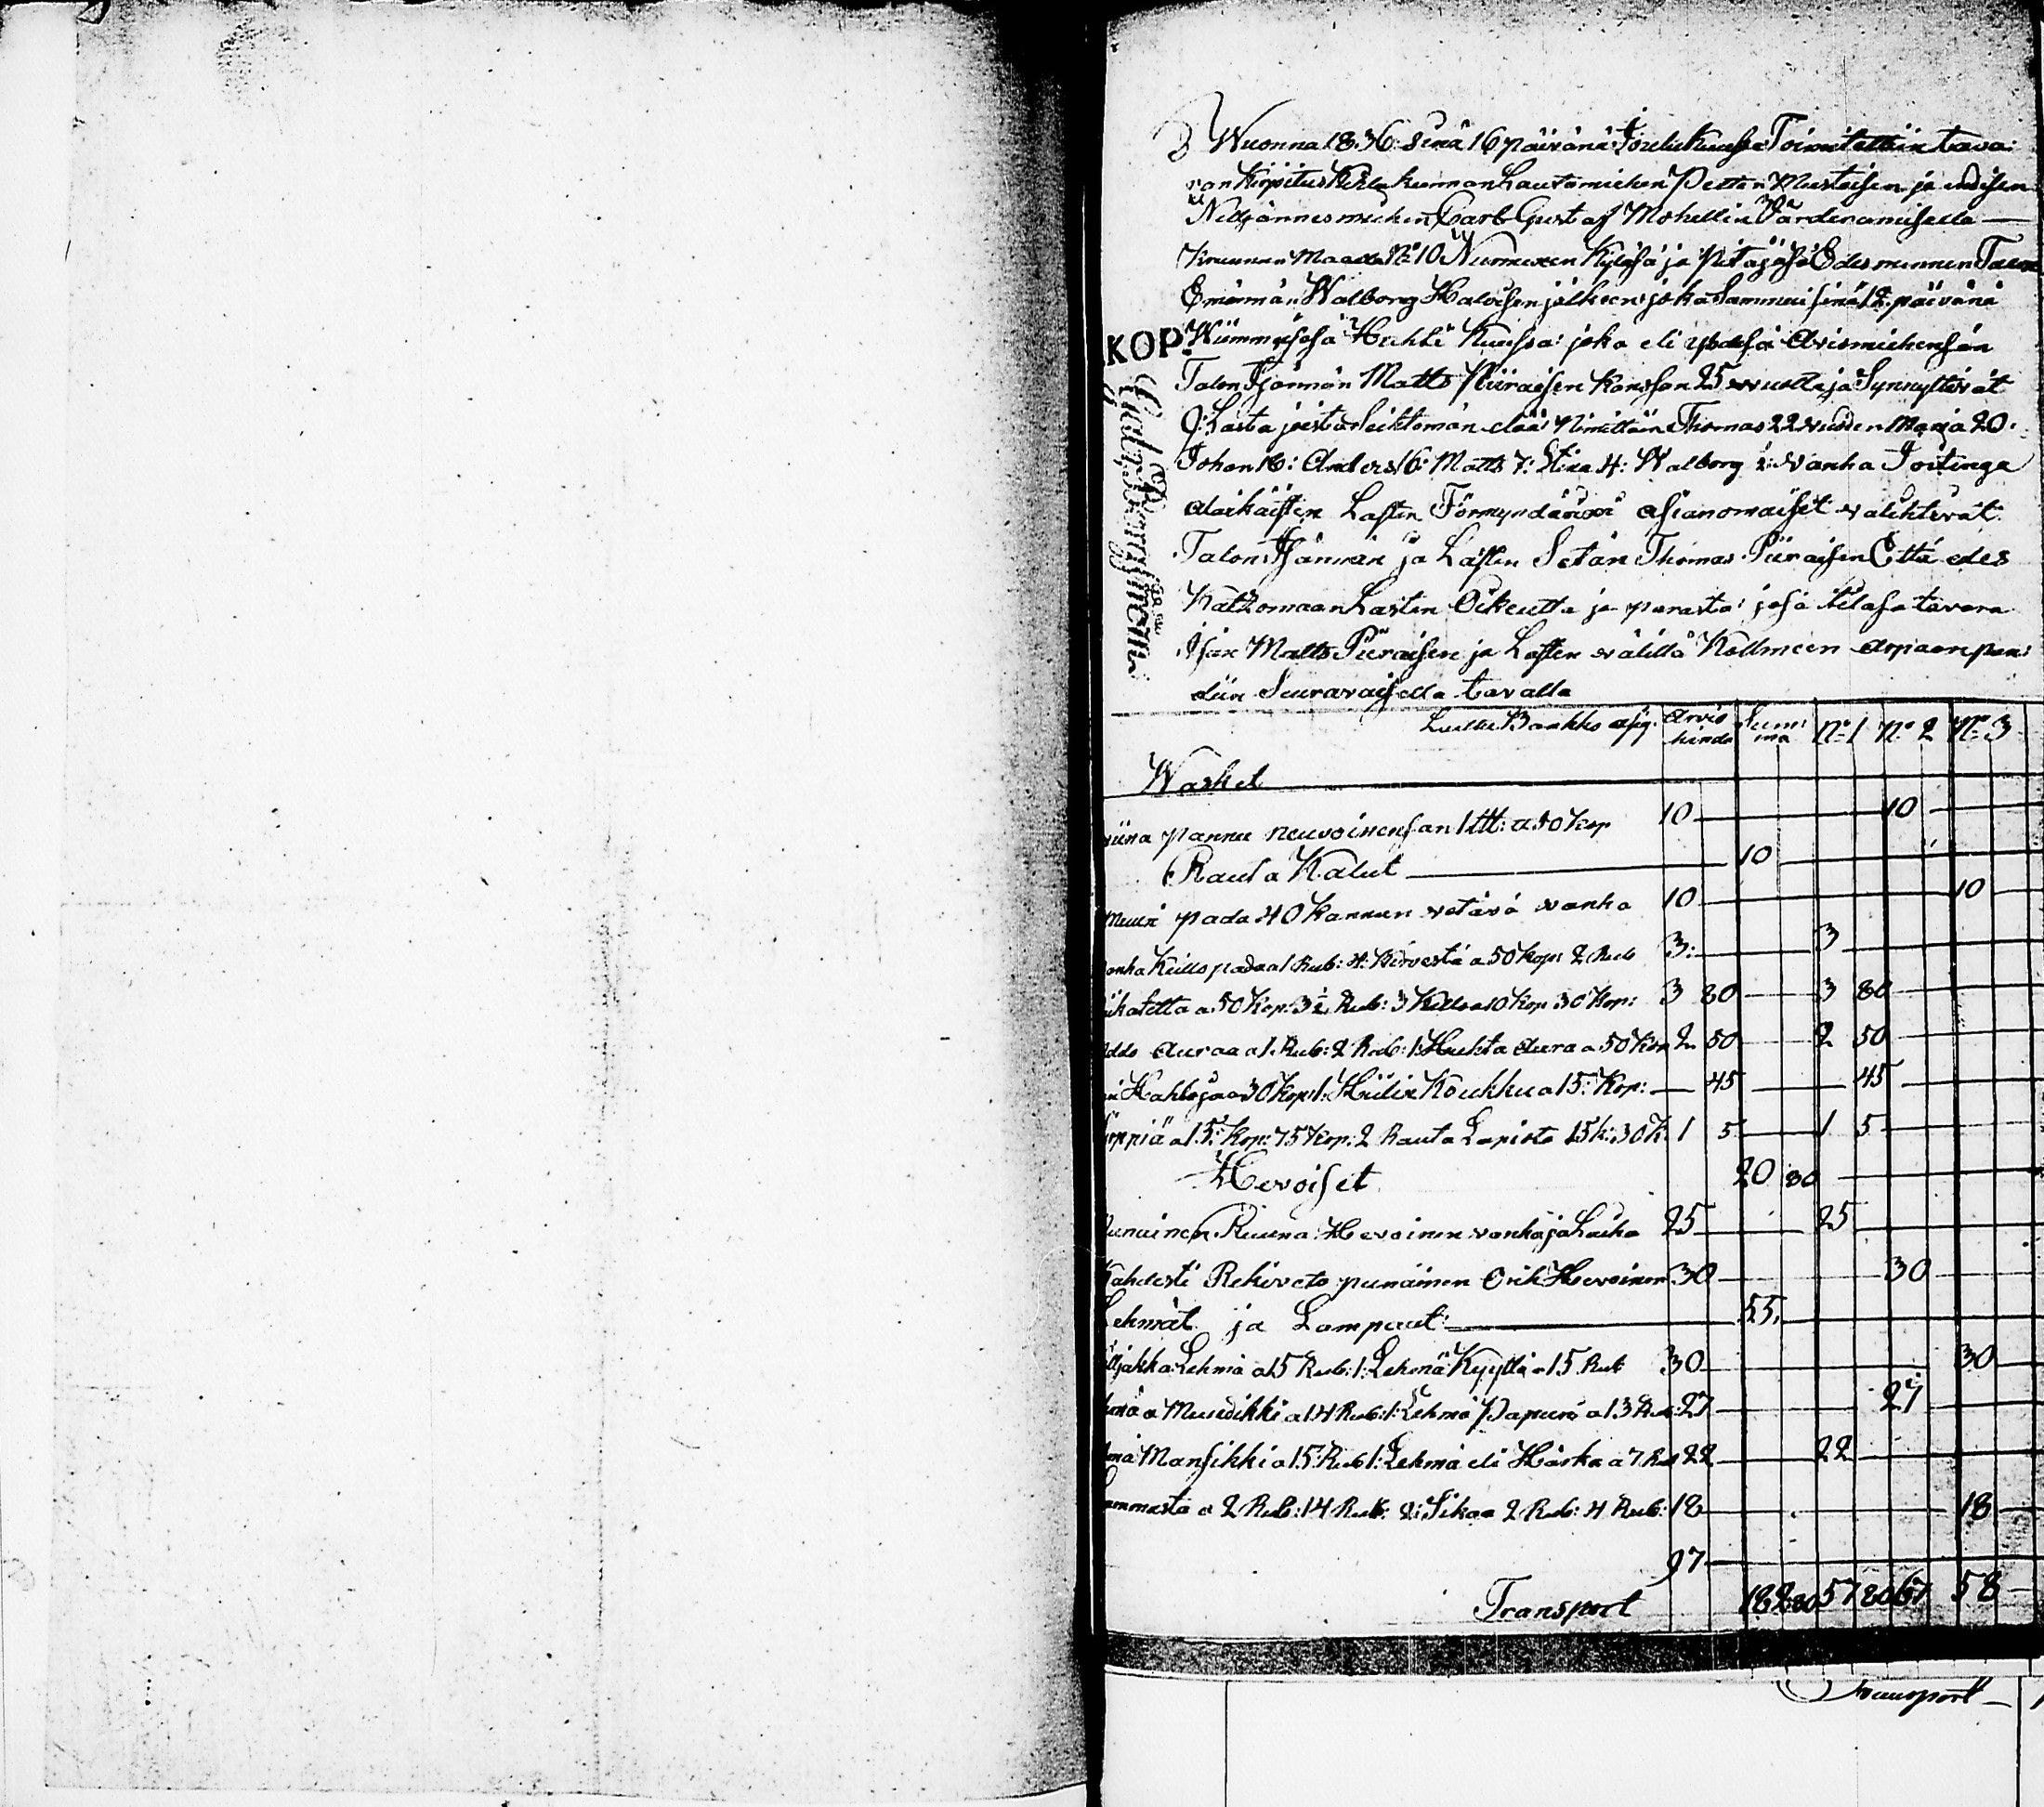 Wuonna 1836 sinä 16 päivänä Joulukuussa Toimitettiin tava:
ran Kirjoitus Kihlakunnan Lautamiehen Petter Mustosen ja endisen
Neljännesmiehen Carl Gustaf Mohellin Värderamisella —
Kruunun Maalla No 10 Nurmexen Kyläsä ja Pitäjäsä Edesmennen Talon
Emännän Walborg Halosen jälkeen: joka Sammui sinä 12 päivänä
KOP. Wiimmesesä Huhti Kuussa: joka eli yhdesä Aviomiehensän
Talon Isännän Matts Piiraisen Kanssan 25 wuotta ja Synnyttivät
9: Lasta joista Seiktemän elää: Nimittäin Thomas 22 vuoden Marja 20.
Johan 16: Anders 16: Matts 7: Stina 4: Walborg 2: Vanha Joitinga
alaikäisten Lasten Förmyndärixi asianomaiset valihtivat
Talon Isännän ja Lasten Setän Thomas Piiraisen Että edes
Katzomaan Lasten Oikeutta ja parasta: josa tilasa tavara
Isän Matts Piiraisen ja Lasten välillä Kollmeen arpaan pan:
diin Seuravaisella tavalla
Luettu Baakko asig. Arvio hinda Summa No 1 No 2 No 3
Wasket
viina pannu neuvoinensan 1 ttt: a 50 Kop 10 10
Rauta Kalut 10
Muuri pada 40 Kannun vetävä vanha 10 10
anha Keitto pada a 1 Rub: 4: Kirvestä a 50 kop: 2 Rub 3: 3
ikatetta a 50 Kop: 3 ½ Rub: 3 a 10 Kop 30 Kop: 3 80 3 80
Auraa a 1. Rub: 2 Rub: 1: Huhta Aura a 50 Kop 2 50 2 50
Kahleja a 30 Kop: 1: Hiilin Koukku a 15: Kop: 45 45
oppiä a 15: Kop: 75 Kop: 2 Rauta Lapiota 15 k: 30 K 1 5 1 5
Hevoiset 20 80
unainen Ruuna Hevoinen vanha ja Laiha 25 25
Kahdesti Rekiveto punainen Orih Hevoinen 30 30
Lehmät ja Lampaat: 55.
iljakka Lehmä a 15 Rub: 1: Lehmä Kyyttä a 15 Rub 30 30
hmä a Musdikki a 14 Rub: 1: Lehmä Papuri a 13 Rub: 27 27
hmä Mansikki a 15: Rub 1: Lehmä eli Härkä a 7 Rub 22 22
ammasta a 2 Rub: 14 Rub: 2: Sikaa 2 Rub: 4 Rub: 18 18
97
Transport 182 80 57 80 67 58
Transport